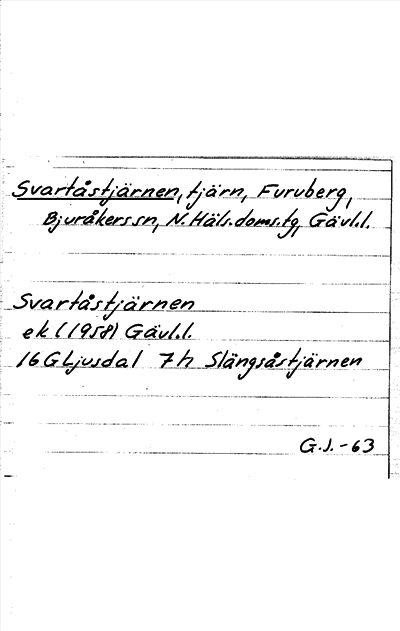 Svartåstjärnen, tjärn, Furuberg,
Bjuråkers sn, N. Häls. doms. tg, Gävl.l.
Svartåstjärnen
ek (1958) Gävl.l.
16 G Ljusdal 7h Slängsåstjärnen
G.J.-63